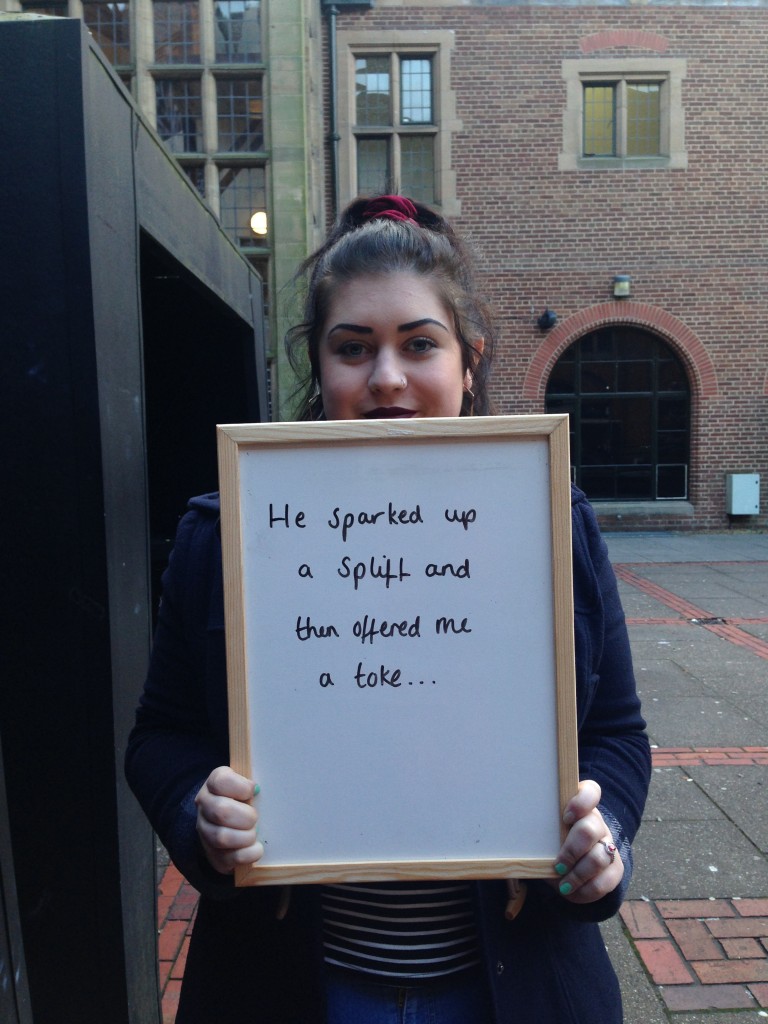 He sparked up
a spliff and
then offered me
a toke...